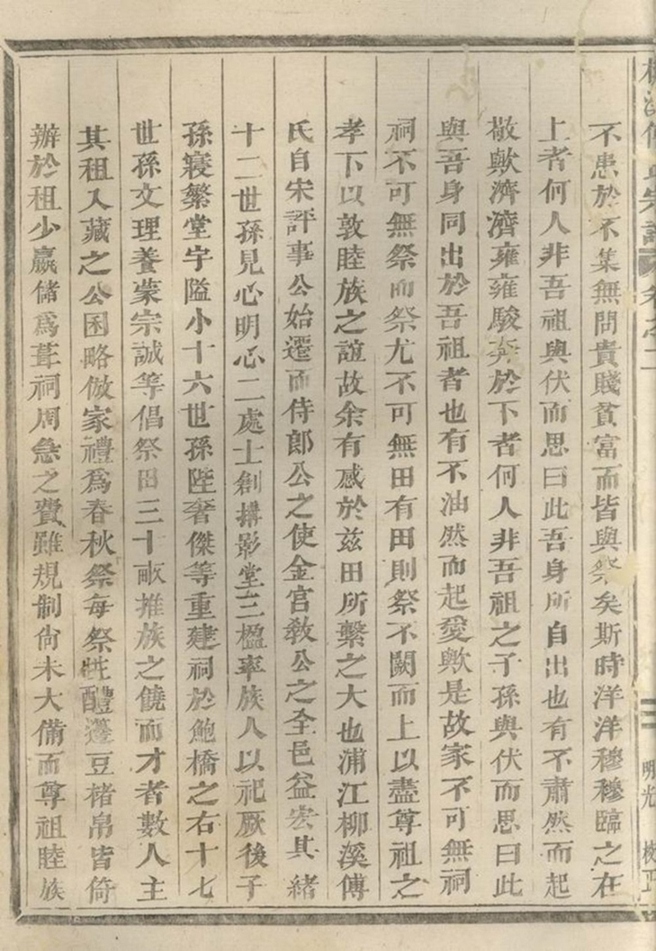 不患於不集無間貴賤貧富而皆與祭矣斯時洋洋穆穆臨之在
上者何人非吾祖與伏而思曰此吾身所自出也有不肅然而起
敬歟濟濟雍雍駿奔於下者何人非吾祖之子孫與伏而思曰此
與吾身同出於吾祖者也有不油然而起愛歟是故家不可無祠
祠不可無祭而祭尤不可無田有田則祭不闕而上以盡尊祖之
孝下以敦睦族之誼故余有感於茲田所繫之大也浦江柳溪傅
氏自宋評事公始遷而侍郎公之使金官敎公之全邑益宏其緒
十二世孫見心明心二處士創搆影堂三楹率族人以祀厥後子
孫寖繁堂宇隘小十六世孫陛奢傑等重建祠於鮑橋之右十七
世孫文理養蒙宗誠等倡祭田三十畝推族之饒而才者數人主
其租入藏之公囷略倣家禮爲春秋祭每祭牲醴籩豆楮帛皆倚
辦於租少贏儲爲葺祠周急之費雖規制尙未大備而尊祖睦族
宗譜 卷之二
明光 校正